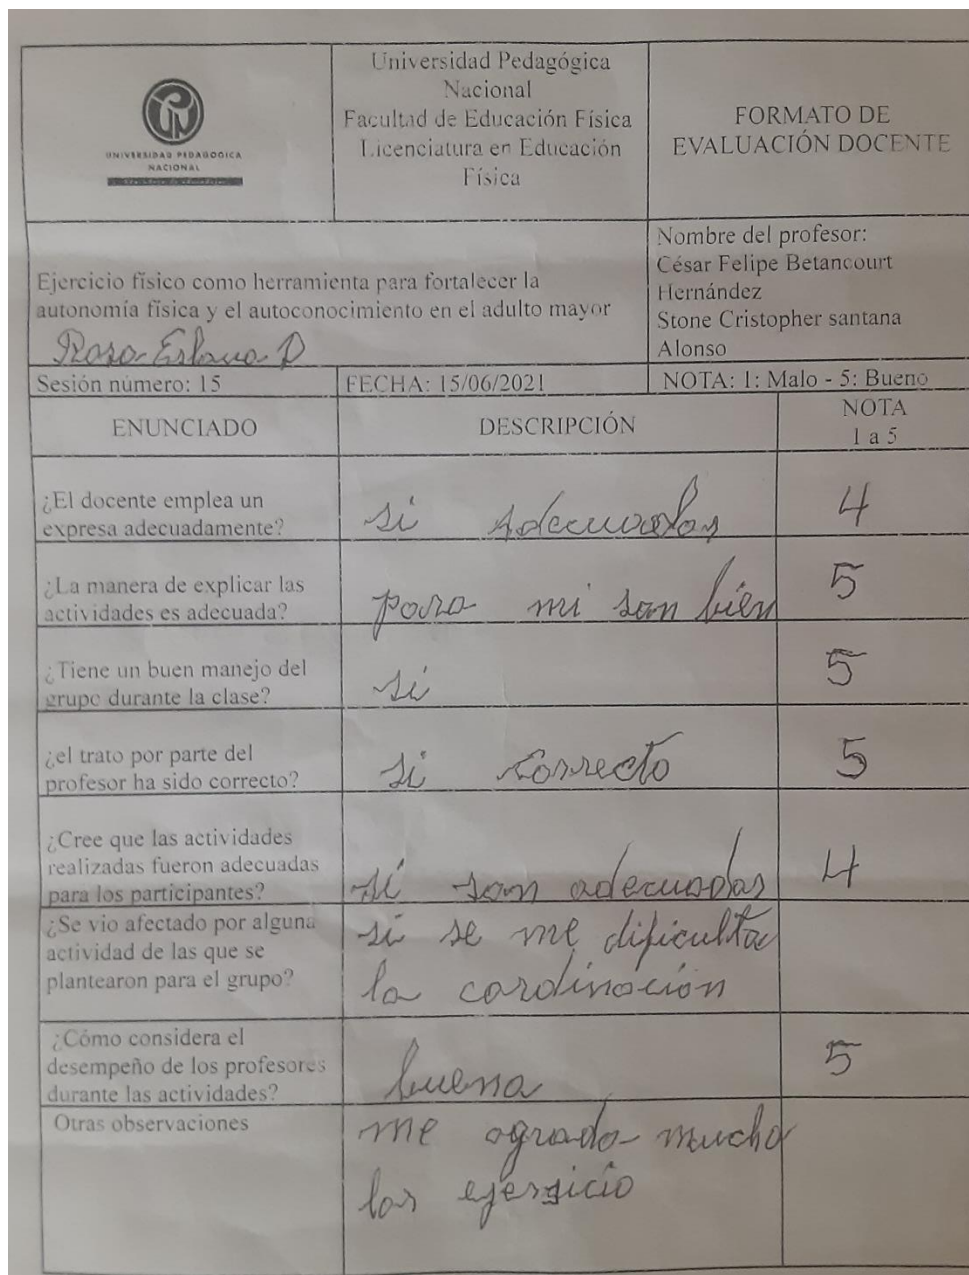 UNIVERSIDAD PEDAGOGICA
NACIONAL
Universidad Pedagógica
Nacional
Facultad de Educación Física
Licenciatura en Educación
Física
FORMATO DE
EVALUACIÓN DOCENTE
Ejercicio físico como herramienta para fortalecer la
autonomía física y el autoconocimiento en el adulto mayor
Rosa Eslava D
Nombre del profesor:
César Felipe Betancourt
Hernández
Stone Cristopher santana
Alonso
Sesión número: 15
FECHA: 15/06/2021
NOTA: 1: Malo - 5: Bueno
ENUNCIADO
DESCRIPCIÓN
NOTA
1 a 5
¿El docente emplea un
expresa adecuadamente?
si adecuadas
4
¿La manera de explicar las
actividades es adecuada?
para mi son bien
5
¿Tiene un buen manejo del
grupo durante la clase?
si
5
¿el trato por parte del
profesor ha sido correcto?
si correcto
5
¿Cree que las actividades
realizadas fueron adecuadas
para los participantes?
si son adecuadas
4
¿Se vio afectado por alguna
actividad de las que se
plantearon para el grupo?
si se me dificulta
la cordinación
¿Cómo considera el
desempeño de los profesores
durante las actividades?
buena
5
Otras observaciones
me agrado mucho
los ejersicio